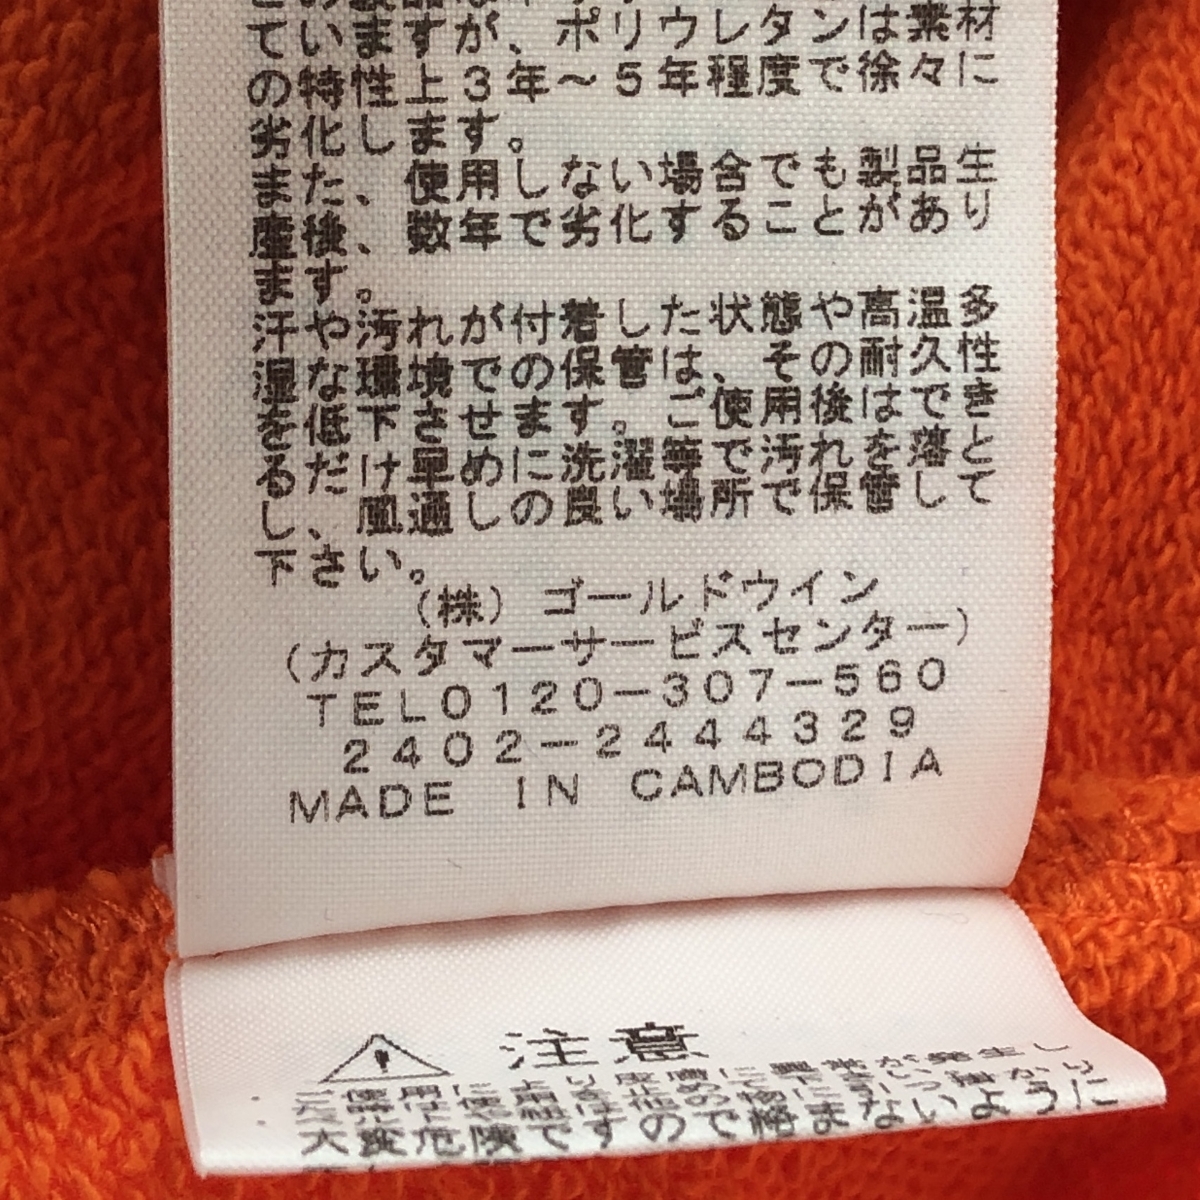 ていますが、ポリウレタンは素材
の特性上3年～5年程度で徐々に
劣化します。
また、使用しない場合でも製品生
産後、数年で劣化することがあり
ます。
汗や汚れが付着した状態や高温多
湿な環境での保管は、その耐久性
を低下させます。ご使用後はでき
るだけ早めに洗濯等で汚れを落と
し、風通しの良い場所で保管して
下さい。
(株) ゴールドウイン
(カスタマーサービスセンター)
TEL0120-307-560
2402-2444329
MADE IN CAMBODIA
注意
大変危険ですので絡まないように